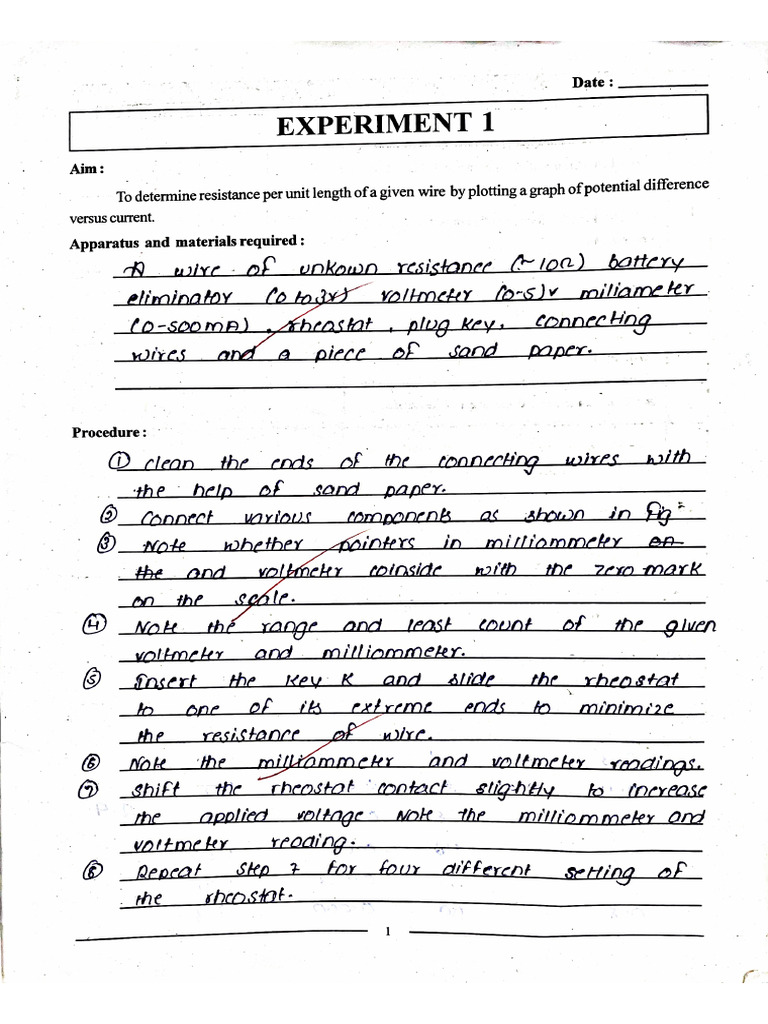 Date : 
EXPERIMENT 1
Aim :
To determine resistance per unit length of a given wire by plotting a graph of potential difference
versus current.
Apparatus and materials required :
A wire of unkown resistance (~10Ω) battery
eliminator (0 to 3v) voltmeter (0-5)v miliameter
(0-500mA), rheostat, plug key, connecting
wires and a piece of sand paper.
Procedure :
① clean the ends of the connecting wires with
the help of sand paper.
② Connect various components as shown in fig
③ Note whether pointers in milliommeter on
the and voltmeter coinside with the zero mark
on the scale.
④ Note the range and least count of the given
voltmeter and milliommeter.
⑤ Insert the key K and slide the rheostat
to one of its extreme ends to minimize
the resistance of wire.
⑥ Note the milliammeter and voltmeter readings.
⑦ Shift the rheostat contact slightly to increase
the applied voltage Note the milliommeter and
voltmeter reading.
⑧ Repeat step 7 for four different setting of
the rheostat.
1